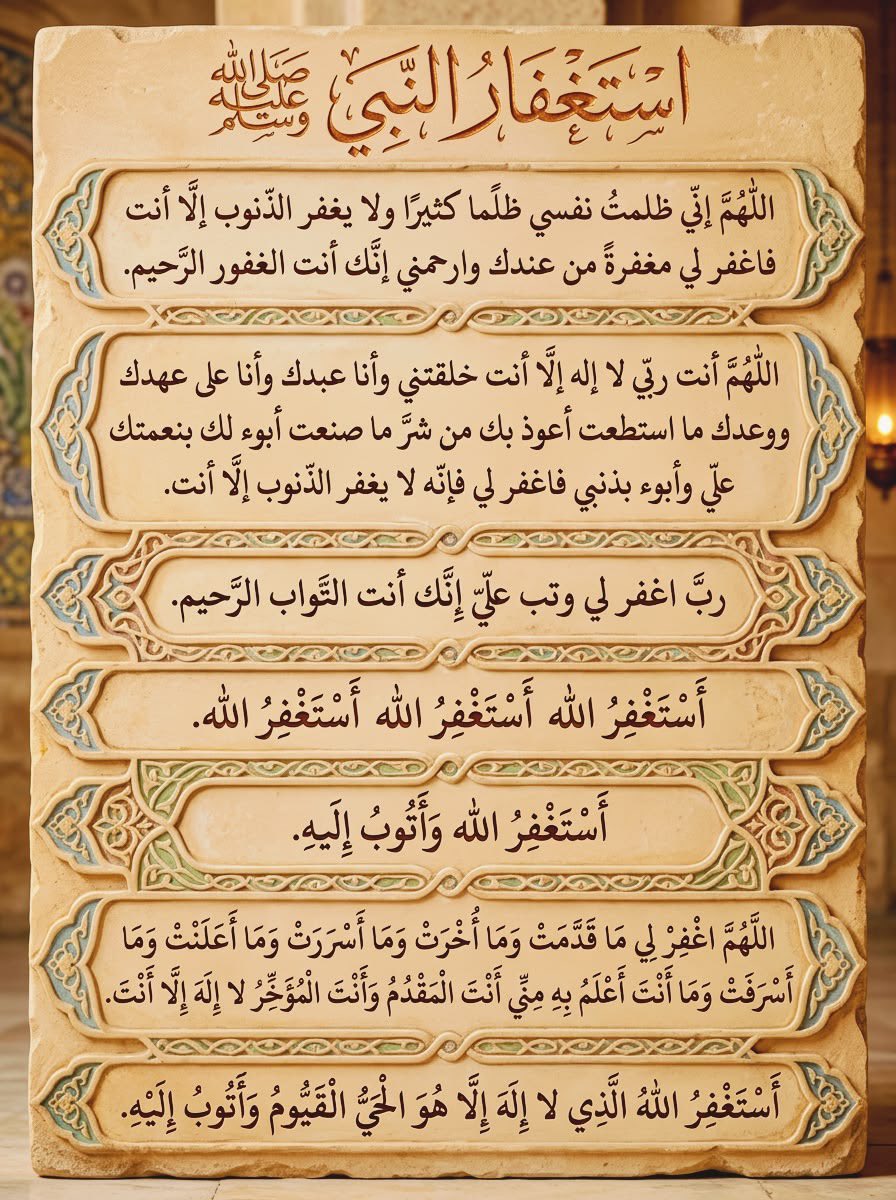 اسْتَغْفَارُ النَّبِيَ ﷺ
اللّٰهُمَّ إنّي ظلمتُ نفسي ظلمًا كثيرًا ولا يغفر الذّنوب إلَّا أنت
فاغفر لي مغفرةً من عندك وارحمني إنَّك أنت الغفور الرَّحيم.
اللّٰهُمَّ أنت ربّي لا إله إلَّا أنت خلقتني وأنا عبدك وأنا على عهدك
ووعدك ما استطعت أعوذ بك من شرَّ ما صنعت أبوء لك بنعمتك
علّي وأبوء بذنبي فاغفر لي فإنّه لا يغفر الذّنوب إلَّا أنت.
ربَّ اغفر لي وتب علّيّ إِنَّك أنت التَّواب الرَّحيم.
أَسْتَغْفِرُ الله أَسْتَغْفِرُ الله أَسْتَغْفِرُ الله.
أَسْتَغْفِرُ الله وَأَتُوبُ إِلَيهِ.
اللَّهُمَّ اغْفِرْ لِي مَا قَدَّمَتْ وَمَا أُخْرَتْ وَمَا أَسْرَرَتْ وَمَا أَعَلَنْتْ وَمَا
أَسْرَفَتْ وَمَا أَنْتَ أَعْلَمُ بِهِ مِنِّي أَنْتَ الْمَقْدُمُ وَأَنْتَ الْمُؤَخِّرُ لا إِلَهَ إِلَّا أَنْتَ.
أَسْتَغْفِرُ اللهُ الَّذِي لا إِلَهَ إِلَّا هُوَ الْحَيُّ الْقَيُّومُ وَأَتُوبُ إِلَيْهِ.